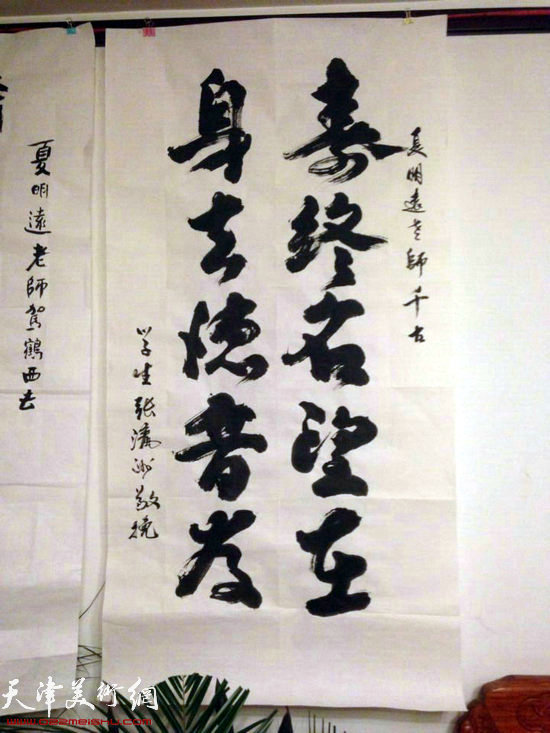 夏明遠老師千古
壽終名望在
身去德音存
学生張瀛洲敬挽
夏明遠老師駕鶴西去
天津美術網
www.022meishu.com